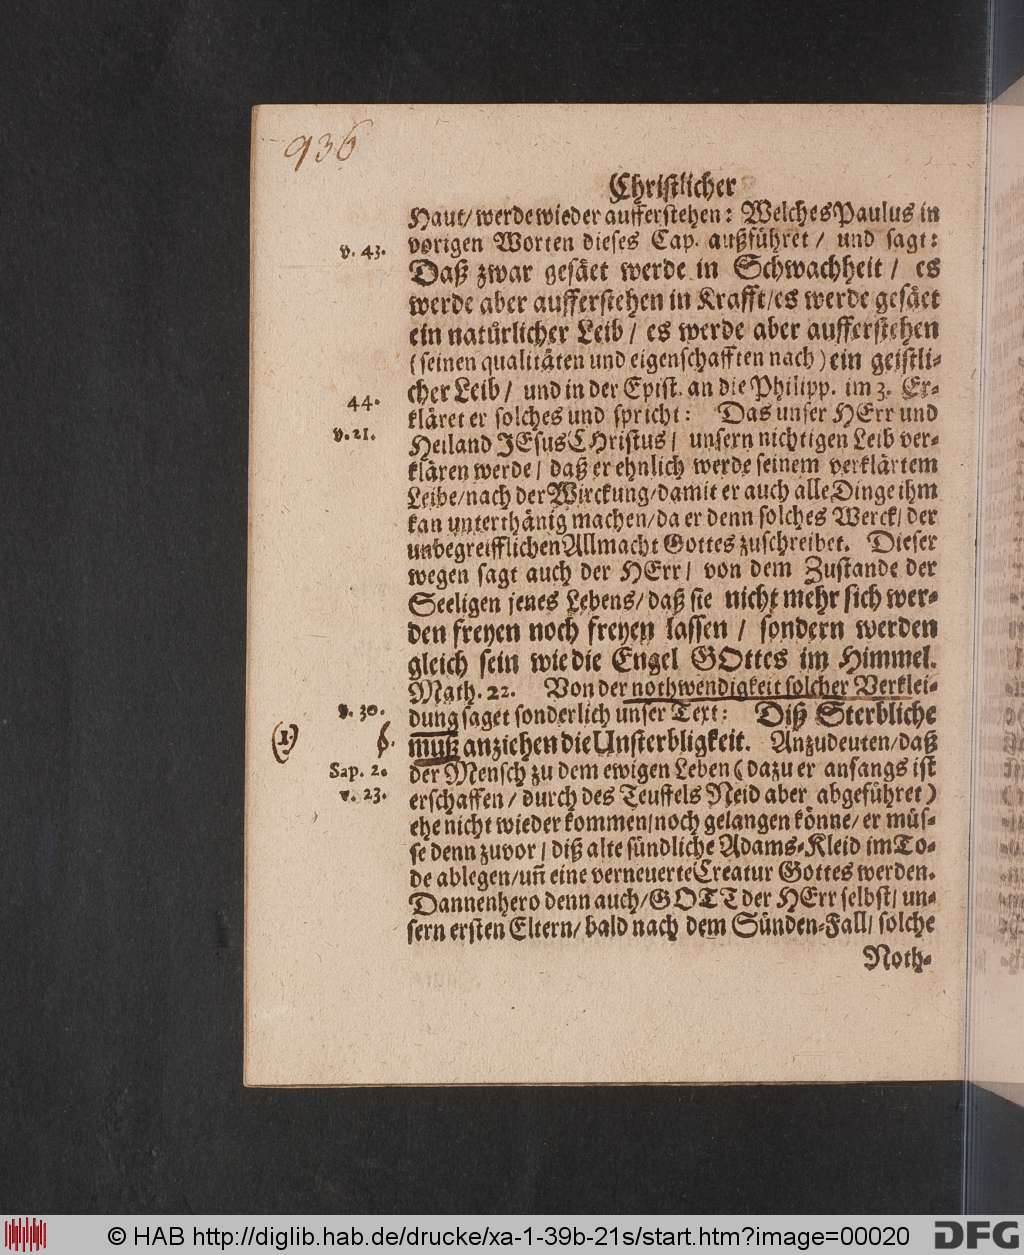 936
Christlicher
Haut/ werde wieder aufferstehen: Welches Paulus in
v. 43. vorigen Worten dieses Cap. außführet / und sagt:
Daß zwar gesäet werde in Schwachheit / es
werde aber aufferstehen in Krafft/es werde gesäet
ein natürlicher Leib / es werde aber aufferstehen
(seinen qualitäten und eigenschafften nach) ein geistli-
44. cher Leib / und in der Epist. an die Philipp. im 3. Er-
kläret er solches und spricht: Das unser HErr und
v. 21. Heiland JEsus CHristus / unsern nichtigen Leib ver-
klären werde / daß er ehnlich werde seinem verklärtem
Leibe/nach der Wirckung/damit er auch alle Dinge ihm
kan unterthänig machen/da er denn solches Werck/ der
unbegreifflichen Allmacht Gottes zuschreibet. Dieser
wegen sagt auch der HErr / von dem Zustande der
Seeligen jenes Lebens/ daß sie nicht mehr sich wer-
den freyen noch freyen lassen / sondern werden
gleich sein wie die Engel GOttes im Himmel.
Math. 22. Von der nothwendigkeit solcher Verklei-
v. 30. dung saget sonderlich unser Text: Diß Sterbliche
(1) muß anziehen die Unsterbligkeit. Anzudeuten/daß
Sap. 2. der Mensch zu dem ewigen Leben (dazu er anfangs ist
v. 23. erschaffen / durch des Teuffels Neid aber abgeführet)
ehe nicht wieder kommen/noch gelangen könne/ er müs-
se denn zuvor / diß alte sündliche Adams-Kleid im To-
de ablegen/uñ eine verneuerte Creatur Gottes werden.
Dannenhero denn auch/GOTT der HErr selbst/ un-
sern ersten Eltern/ bald nach dem Sünden-Fall/ solche
Noth-
© HAB http://diglib.hab.de/drucke/xa-1-39b-21s/start.htm?image=00020
DFG